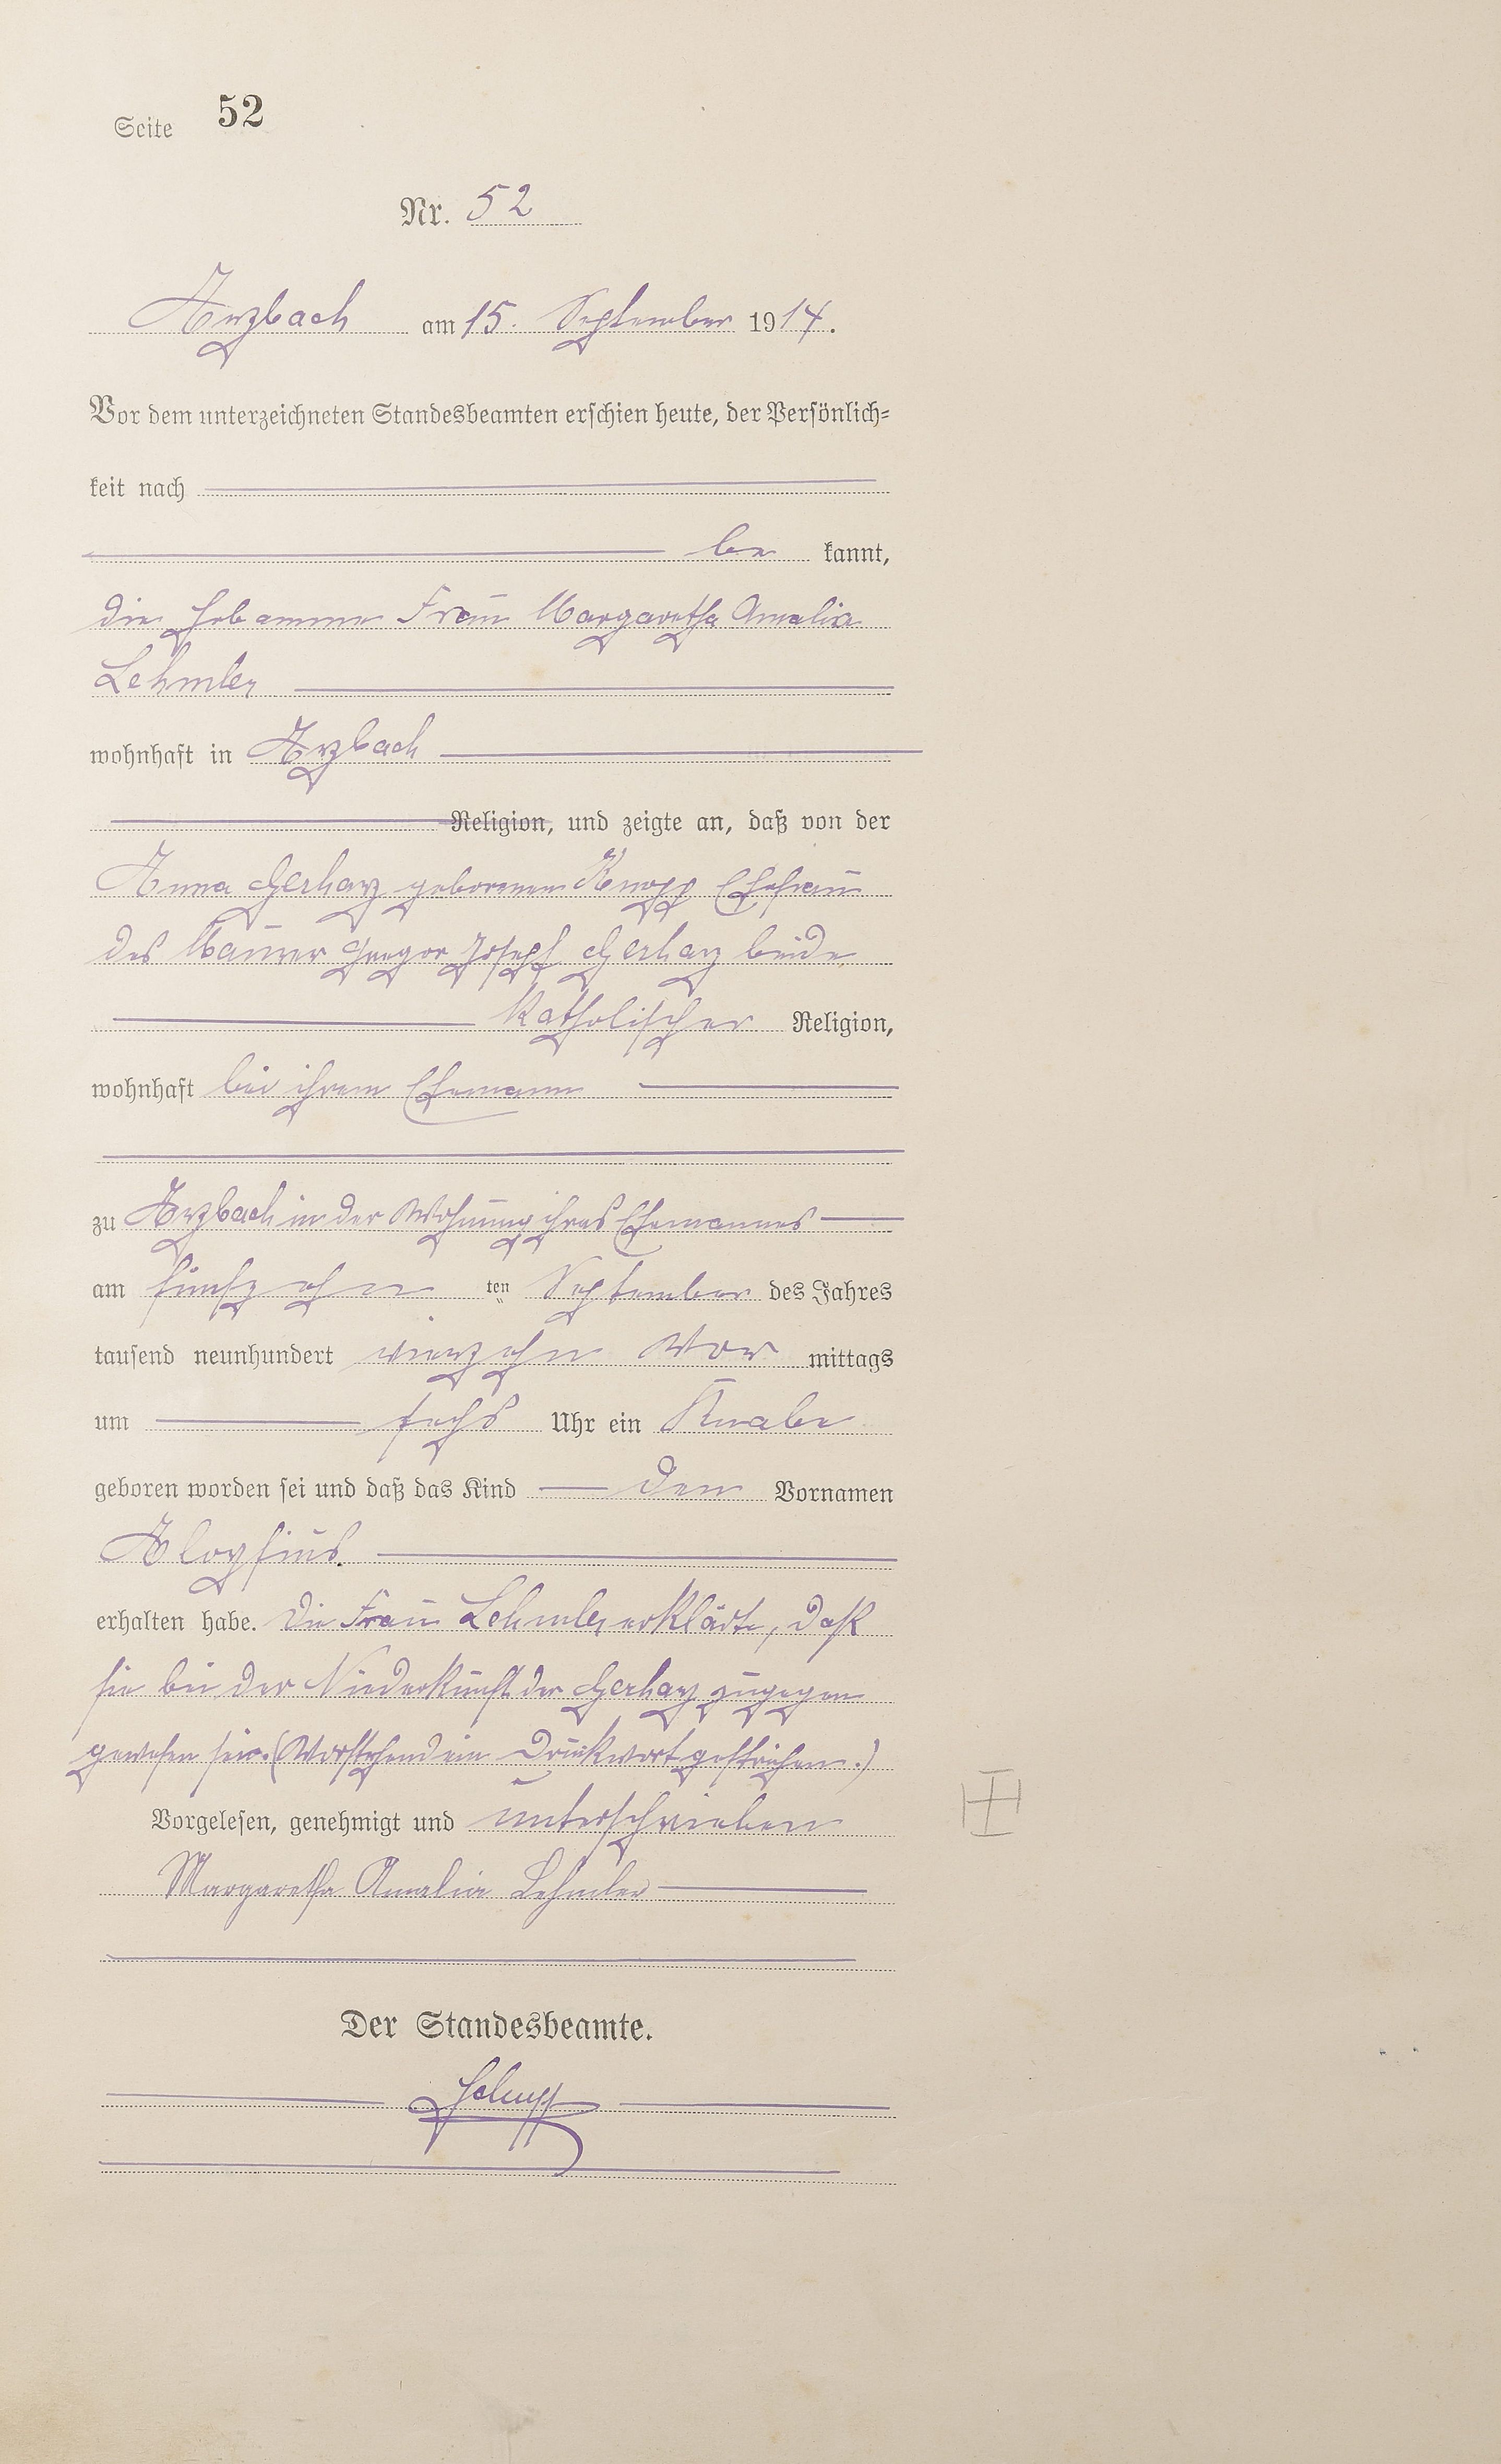 Seite 52
Nr. 52
Arzbach am 15. September 1914.
Vor dem unterzeichneten Standesbeamten erschien heute, der Persönlich-
keit nach
be kannt,
die Hebamme Frau Margaretha Amalia
Lehmler
wohnhaft in Arzbach
Religion, und zeigte an, daß von der
Anna Gerharz geborenen Knopp Ehefrau
des Maurer Gregor Joseph Gerharz beide
katholischer Religion,
wohnhaft bei ihrem Ehemann
zu Arzbach in der Wohnung ihres Ehemannes
am fünfzehn ten September des Jahres
tausend neunhundert vierzehn Vor mittags
um sechs Uhr ein Knabe
geboren worden sei und daß das Kind den Vornamen
Aloysius.
erhalten habe. Die Frau Lehmler erklärte, daß
sie bei der Niederkunft der Gerharz zugegen
gewesen sei. (Vorstehend ein Druckwort gestrichen.)
Vorgelesen, genehmigt und unterschrieben
Margaretha Amalia Lehmler
Der Standesbeamte.